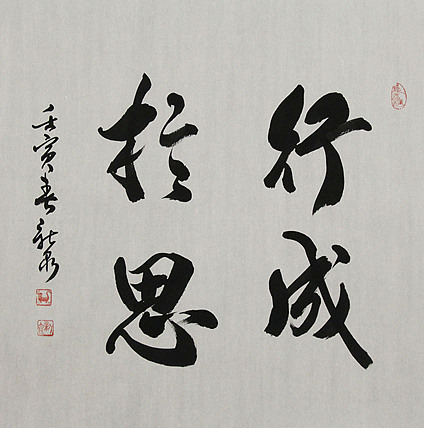 行成
於思
壬寅春